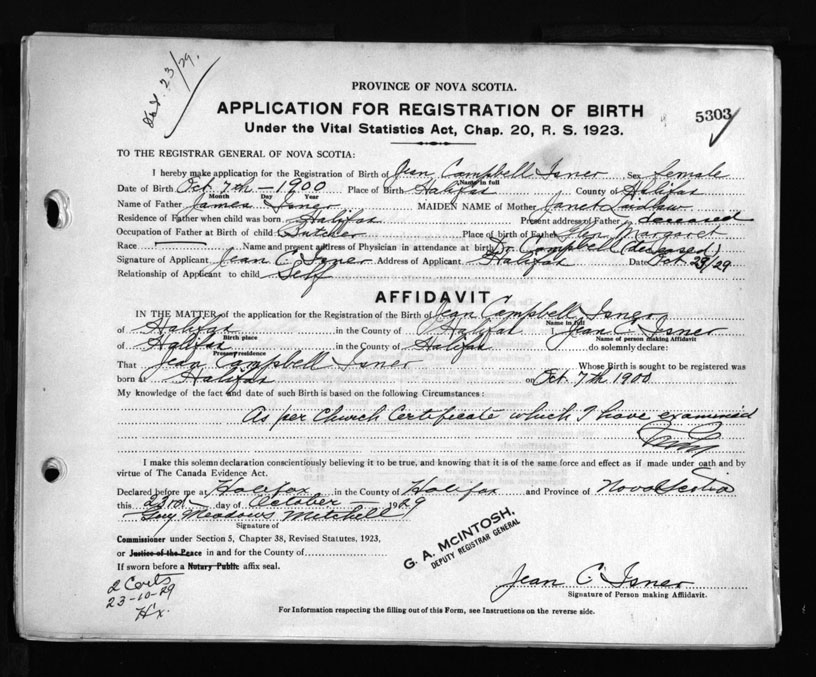 23/29.
PROVINCE OF NOVA SCOTIA.
APPLICATION FOR REGISTRATION OF BIRTH
5303
Under the Vital Statistics Act, Chap. 20, R. S. 1923.
TO THE REGISTRAR GENERAL OF NOVA SCOTIA:
I hereby make application for the Registration of Birth of Jean Campbell Isner Sex female
Name in full
Date of Birth Oct. 7th - 1900 Place of Birth Halifax County of Halifax
Month Day Year
Name of Father James Isner MAIDEN NAME of Mother Janet Laidlaw
Residence of Father when child was born Halifax Present address of Father deceased
Occupation of Father at Birth of child Butcher Place of birth of Father Glen Margaret
Race — Name and present address of Physician in attendance at birth Dr. Campbell (deceased)
Signature of Applicant Jean C. Isner Address of Applicant Halifax Date Oct 23/29
Relationship of Applicant to child Self
AFFIDAVIT
IN THE MATTER of the application for the Registration of the Birth of Jean Campbell Isner
of Halifax in the County of Halifax I, Jean C. Isner
Birth place Name of person making Affidavit
of Halifax in the County of Halifax do solemnly declare:
Present residence
That Jean Campbell Isner Whose Birth is sought to be registered was
born at Halifax on Oct. 7th 1900
My knowledge of the fact and date of such Birth is based on the following Circumstances:
As per Church Certificate which I have examined
I make this solemn declaration conscientiously believing it to be true, and knowing that it is of the same force and effect as if made under oath and by
virtue of The Canada Evidence Act.
Declared before me at Halifax in the County of Halifax and Province of Nova Scotia
this 23rd day of October 1929
Guy Meadows Mitchell
Signature of
Commissioner under Section 5, Chapter 38, Revised Statutes, 1923,
or Justice of the Peace in and for the County of
If sworn before a Notary Public affix seal.
G. A. McINTOSH,
DEPUTY REGISTRAR GENERAL
2 Certs
23-10-29
Hx.
Jean C. Isner
Signature of Person making Affidavit.
For Information respecting the filling out of this Form, see Instructions on the reverse side.